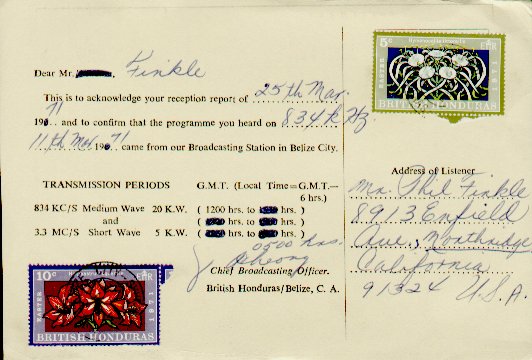 Dear Mr. Finkle
This is to acknowledge your reception report of 25th Mar.
1971 and to confirm that the programme you heard on 834 kHz
11th Mar 1971 came from our Broadcasting Station in Belize City.
TRANSMISSION PERIODS G.M.T. (Local Time=G.M.T.—
6 hrs.)
834 KC/S Medium Wave 20 K.W. ( 1200 hrs. to hrs. )
and ( hrs. to hrs. )
3.3 MC/S Short Wave 5 K.W. ( hrs. to hrs. )
0500 hrs.
Chief Broadcasting Officer.
British Honduras/Belize, C. A.
5c
EIIR
EASTER
1971
BRITISH HONDURAS
Address of Listener
Mr. Phil Finkle
8913 Enfield
Ave., Northridge
California
91324 U.S.A
10c
EIIR
EASTER
1971
BRITISH HONDURAS